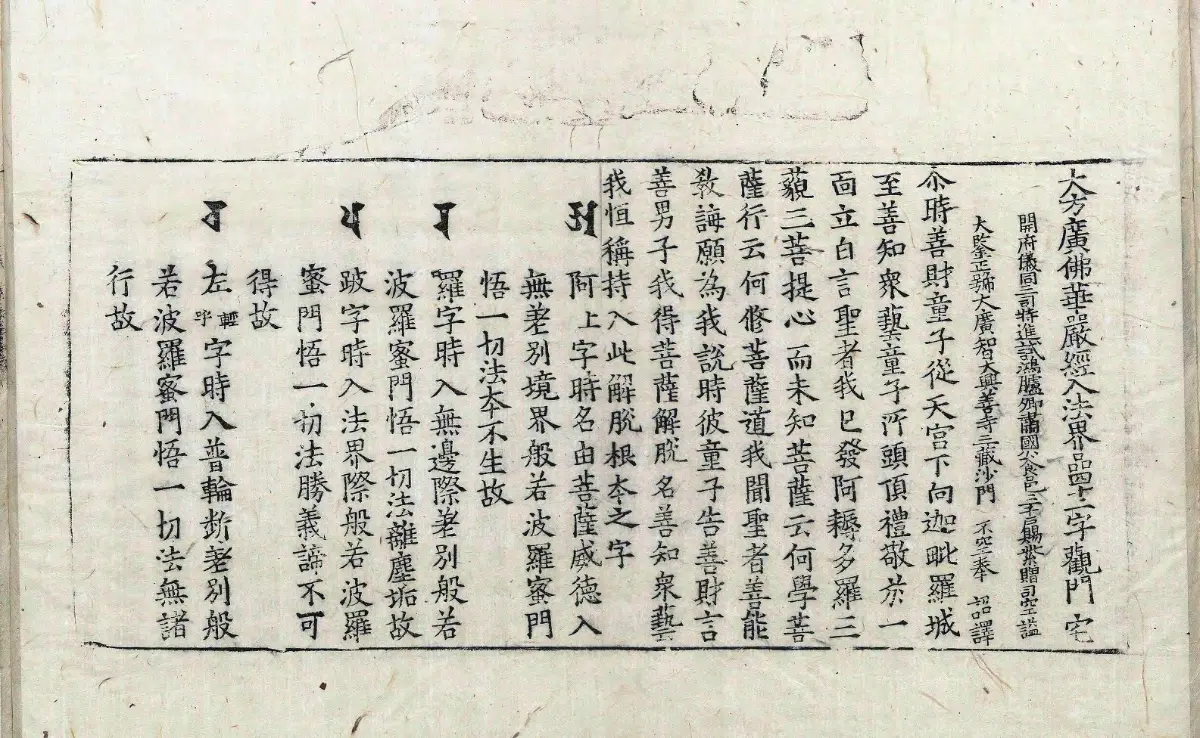 大方廣佛華嚴經入法界品四十二字觀門 宅
開府儀同三司特進試鴻臚卿肅國公食邑三千戶賜紫贈司空謚
大鑒正號大廣智大興善寺三藏沙門 不空奉 詔譯
尒時善財童子從天宮下向迦毗羅城
至善知衆藝童子所頭頂禮敬於一
靣立白言聖者我已發阿耨多羅三
藐三菩提心而未知菩薩云何學菩
薩行云何修菩薩道我聞聖者善能
教誨願為我說時彼童子告善財言
善男子我得菩薩解脫名善知衆藝
我恒稱持入此解脫根夲之字
𑖀 阿上字時名由菩薩威德入
無差別境界般若波羅蜜門
悟一切法夲不生故
𑖨 羅字時入無邊際差別般若
波羅蜜門悟一切法離塵垢故
𑖢 跛字時入法界際般若波羅
蜜門悟一切法勝義諦不可
得故
𑖓 左輕呼字時入普輪斷差別般
若波羅蜜門悟一切法無諸
行故